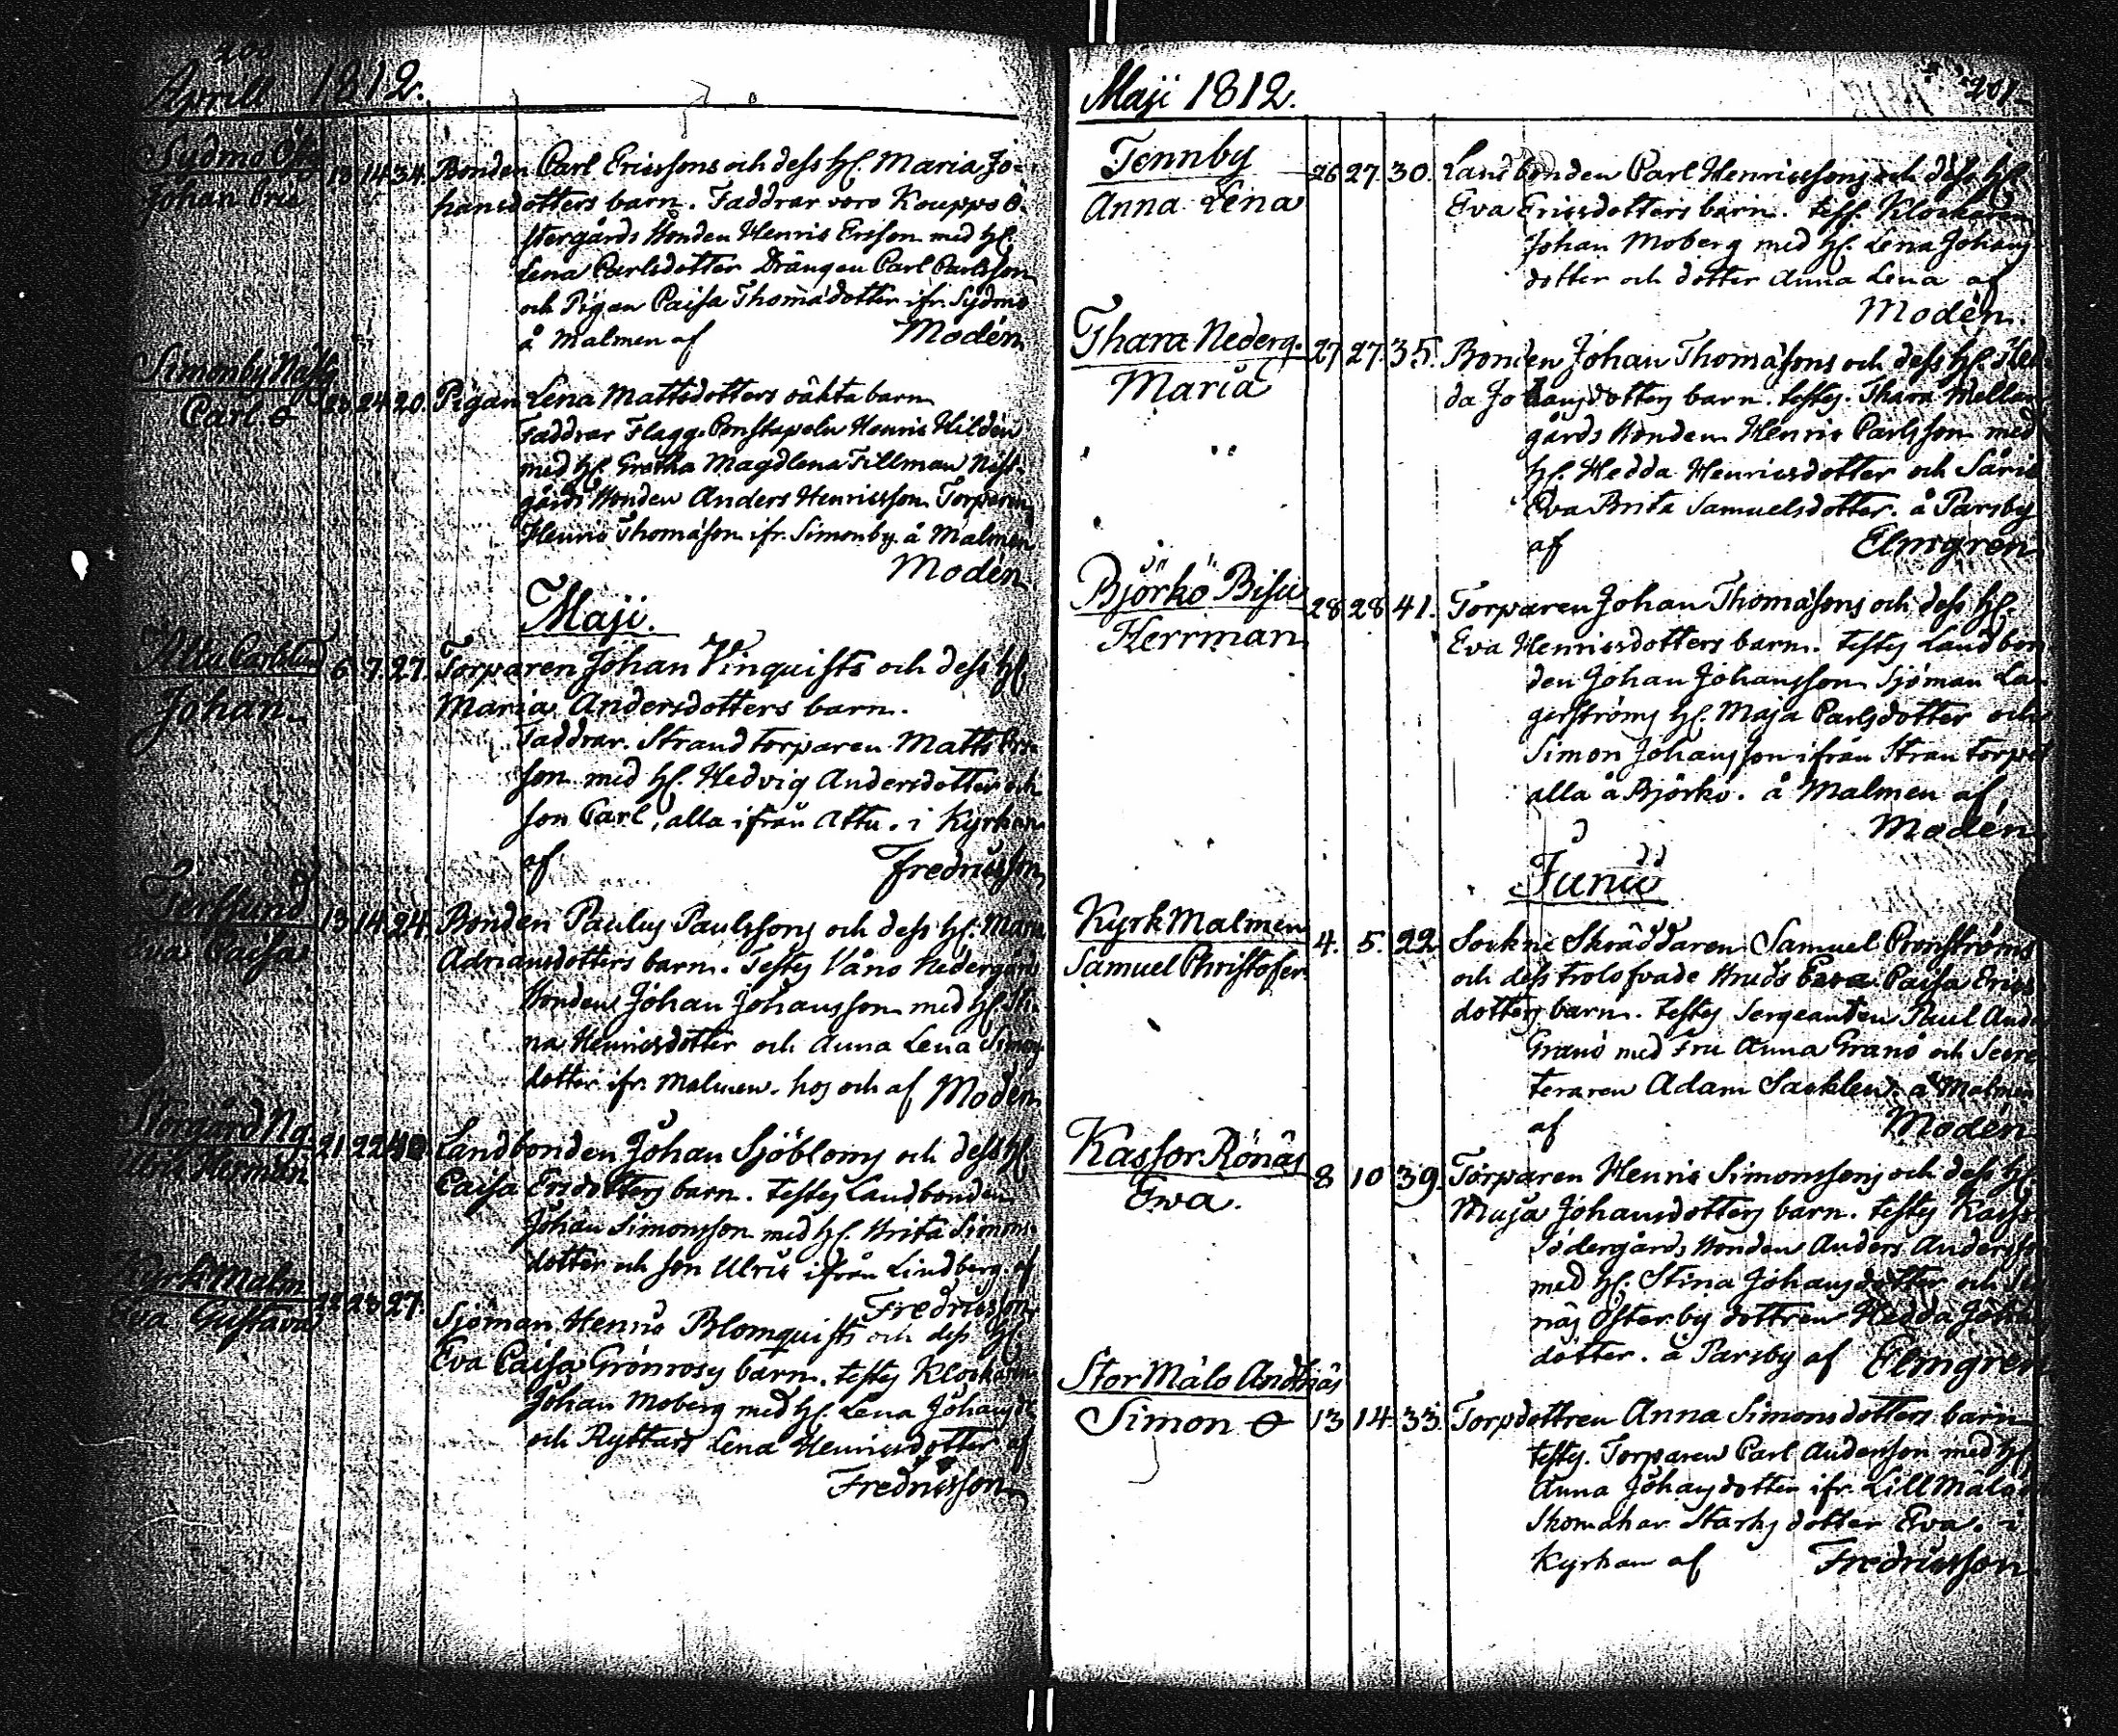 200
Aprill 1812.
Sydmo Öfg
Johan Eric
13 14 34.
Bonden Carl Ericssons och dess H. Maria Jo-
hansdotters barn. Faddrar voro Kouppo Ö-
stergårds Bonden Henric Ersson med H.
Lena Carlsdotter Drängen Carl Carlsson
och Pigan Caisa Thomædotter ifr. Sydmo
å Malmen af Modén
Simonby
Carl
23 24 20.
Pigan Lena Mattsdotters oäkta barn
Faddrar Flagg Constapeln Henric Hildén
med H. Gretha Magdlena Tillman
gårds Bonden Anders Henricsson Torparen
Henric Thomæson ifr. Simonby. å Malmen
Modén
Maji.
Attu
Johan
6 7. 27.
Torparen Johan Vinquists och dess H.
Maria Andersdotters barn.
Faddrar. Strandtorparen Matts Eric-
son med H. Hedvig Andersdotter och
son Carl, alla ifrån Attu. i Kyrkan
af Fredricsson
Terflund
Eva Caisa
13 14 24.
Bonden Paulus Paulssons och dess H. Maria
Adriansdotters barn. Testes Våno Nedergårds
Bonden Johan Johansson med H. Sti-
na Henricsdotter och Anna Lena Simons
dotter ifr. Malmen. hos och af Modén
Storgård Ng.
Ulric Herman
21 22 40
Landbonden Johan Sjöbloms och dess H.
Caisa Ersdotters barn. testes Landbonden
Johan Simonsson med H. Brita Simons-
dotter och son Ulric ifrån Lindberg. af
Fredricsson
Kyrk Malm
Eva Gustava
22 23 27.
Sjöman Henric Blomquists och dess H.
Eva Caisa Grönroos barn. testes Klockaren
Johan Moberg med H. Lena Johansd.
och Ryttars Lena Henricsdotter af
Fredricsson
Maji 1812.
201
Tennby
Anna Lena
26 27. 30.
Landbonden Carl Henricssons och dess H.
Eva Ericsdotters barn. test. Klockaren
Johan Moberg med H. Lena Johans
dotter och dotter Anna Lena af
Modén.
Thara Nederg.
Maria
27 27. 35.
Bonden Johan Thomæsons och dess H. Hed-
da Johansdotters barn. testes. Thara Mellan
gårds Bonden Henric Carlsson med
H. Hedda Henricsdotter och
Eva Brita Samuelsdotter. å Parsby
af Elmgren
Björkö Bisu
Herrman
28 28 41.
Torparen Johan Thomæsons och dess H.
Eva Henricsdotters barn. testes Landbon
den Johan Johansson Sjöman La-
gerströms H. Maja Carlsdotter och
Simon Johansson ifrån Stran torpet
alla å Björkö. å Malmen af
Modén
Junii
Kyrk Malmen
Samuel Christofer
4. 5. 22
Sockne Skräddaren Samuel Cronströms
och dess trolofvade Bruds Eva Caisa Erics
dotters barn. testes Sergeanten Paul And.
Granö med Fru Anna Granö och Secre
teraren Adam Sacklen. å Malmen
af Modén
Kassor Rönäs
Eva.
8 10 39.
Torparen Henric Simonssons och dess H.
Maja Johansdotters barn. testes Kassor
Södergårds Bonden Anders Andersson
med H. Stina Johansdotter och
näs Österby dottren Hedda Johans
dotter. å Parsby af Elmgren
Stor Målo Andnäs
Simon
13 14. 33.
Torpdottren Anna Simonsdotters barn
testes. Torparen Carl Andersson med H.
Anna Johansdotter ifr. Lill Målo
Skomakar Starks dotter Eva. i
Kyrkan af Fredricsson